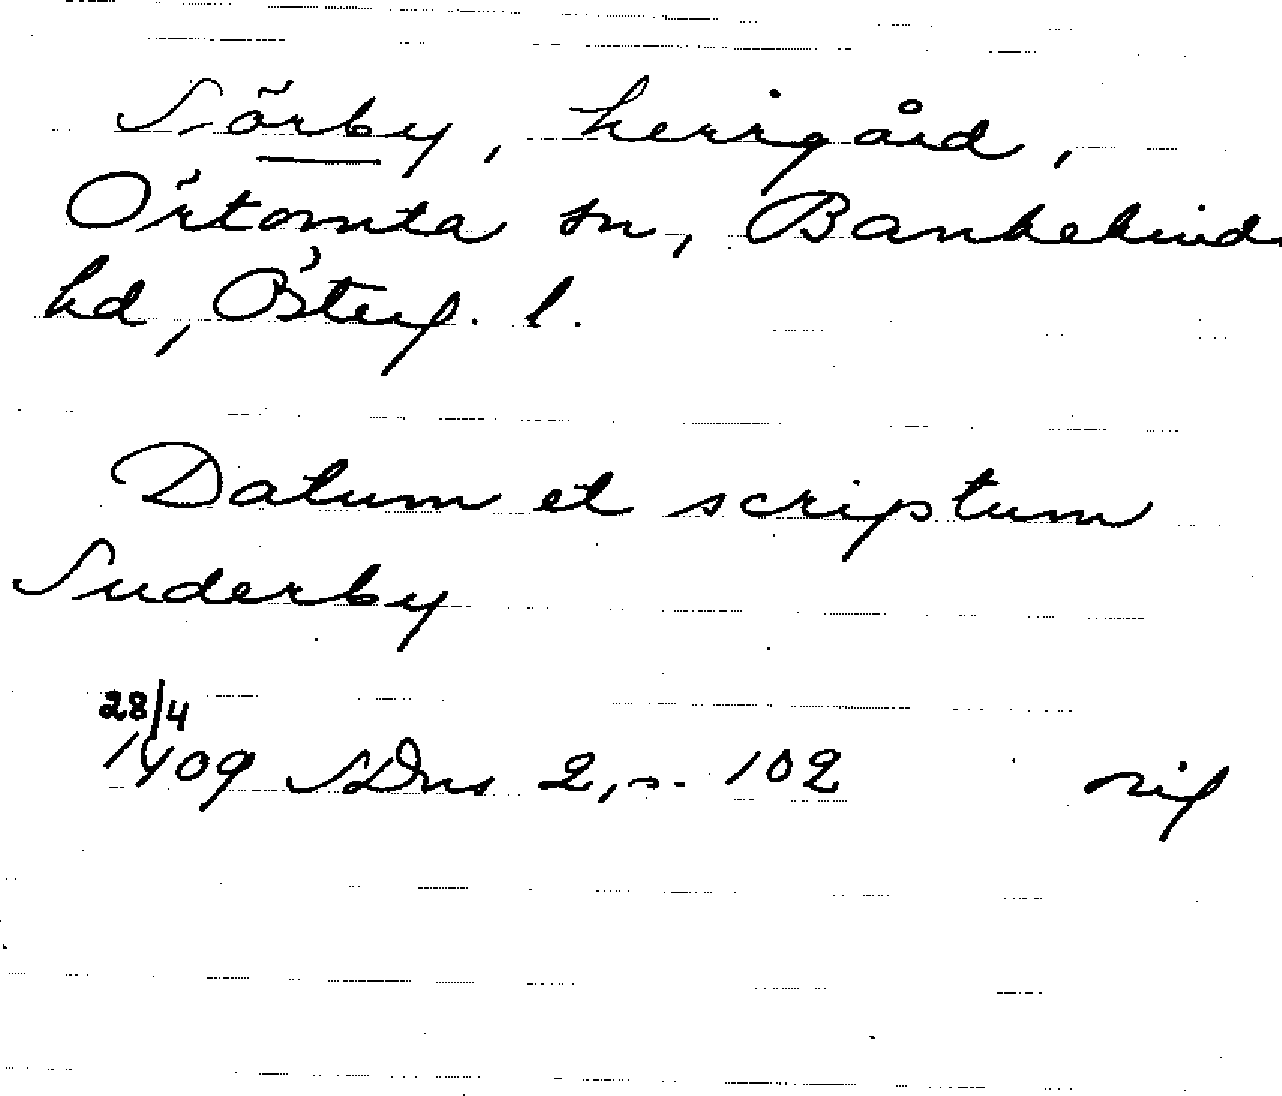 Sörby, herrgård,
Örtomta sn, Bankekinds
hd, Österg. l.
Datum et scriptum
Suderby
28/4
1409 SDns 2, s. 102